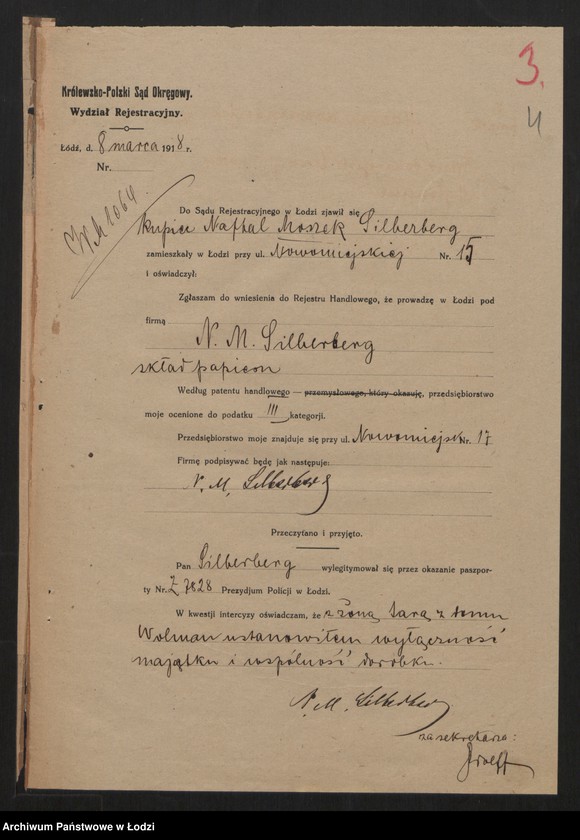 3.
4
Królewsko-Polski Sąd Okręgowy.
Wydział Rejestracyjny.
Łódź, d. 8 marca 1918 r.
Nr.
1064.
Do Sądu Rejestracyjnego w Łodzi zjawił się
kupiec Naftal Moszek Silberberg
zamieszkały w Łodzi przy ul. Nowomiejskiej Nr. 15
i oświadczył:
Zgłaszam do wniesienia do Rejestru Handlowego, że prowadzę w Łodzi pod
firmą
N. M. Silberberg
skład papieru
Według patentu handlowego — przemysłowego, który okazuję, przedsiębiorstwo
moje ocenione do podatku III kategorji.
Przedsiębiorstwo moje znajduje się przy ul. Nowomiejsk Nr. 17
Firmę podpisywać będę jak następuje:
N. M. Silberberg
Przeczytano i przyjęto.
Pan Silberberg wylegitymował się przez okazanie paszpor-
ty Nr. 7828 Prezydjum Policji w Łodzi.
W kwestji intercyzy oświadczam, że z żoną Sarą z domu
Wolman ustanowiłem wyłączność
majątku i wspólność dorobku.
N. M. Silberberg
za sekretarza:
Archiwum Państwowe w Łodzi